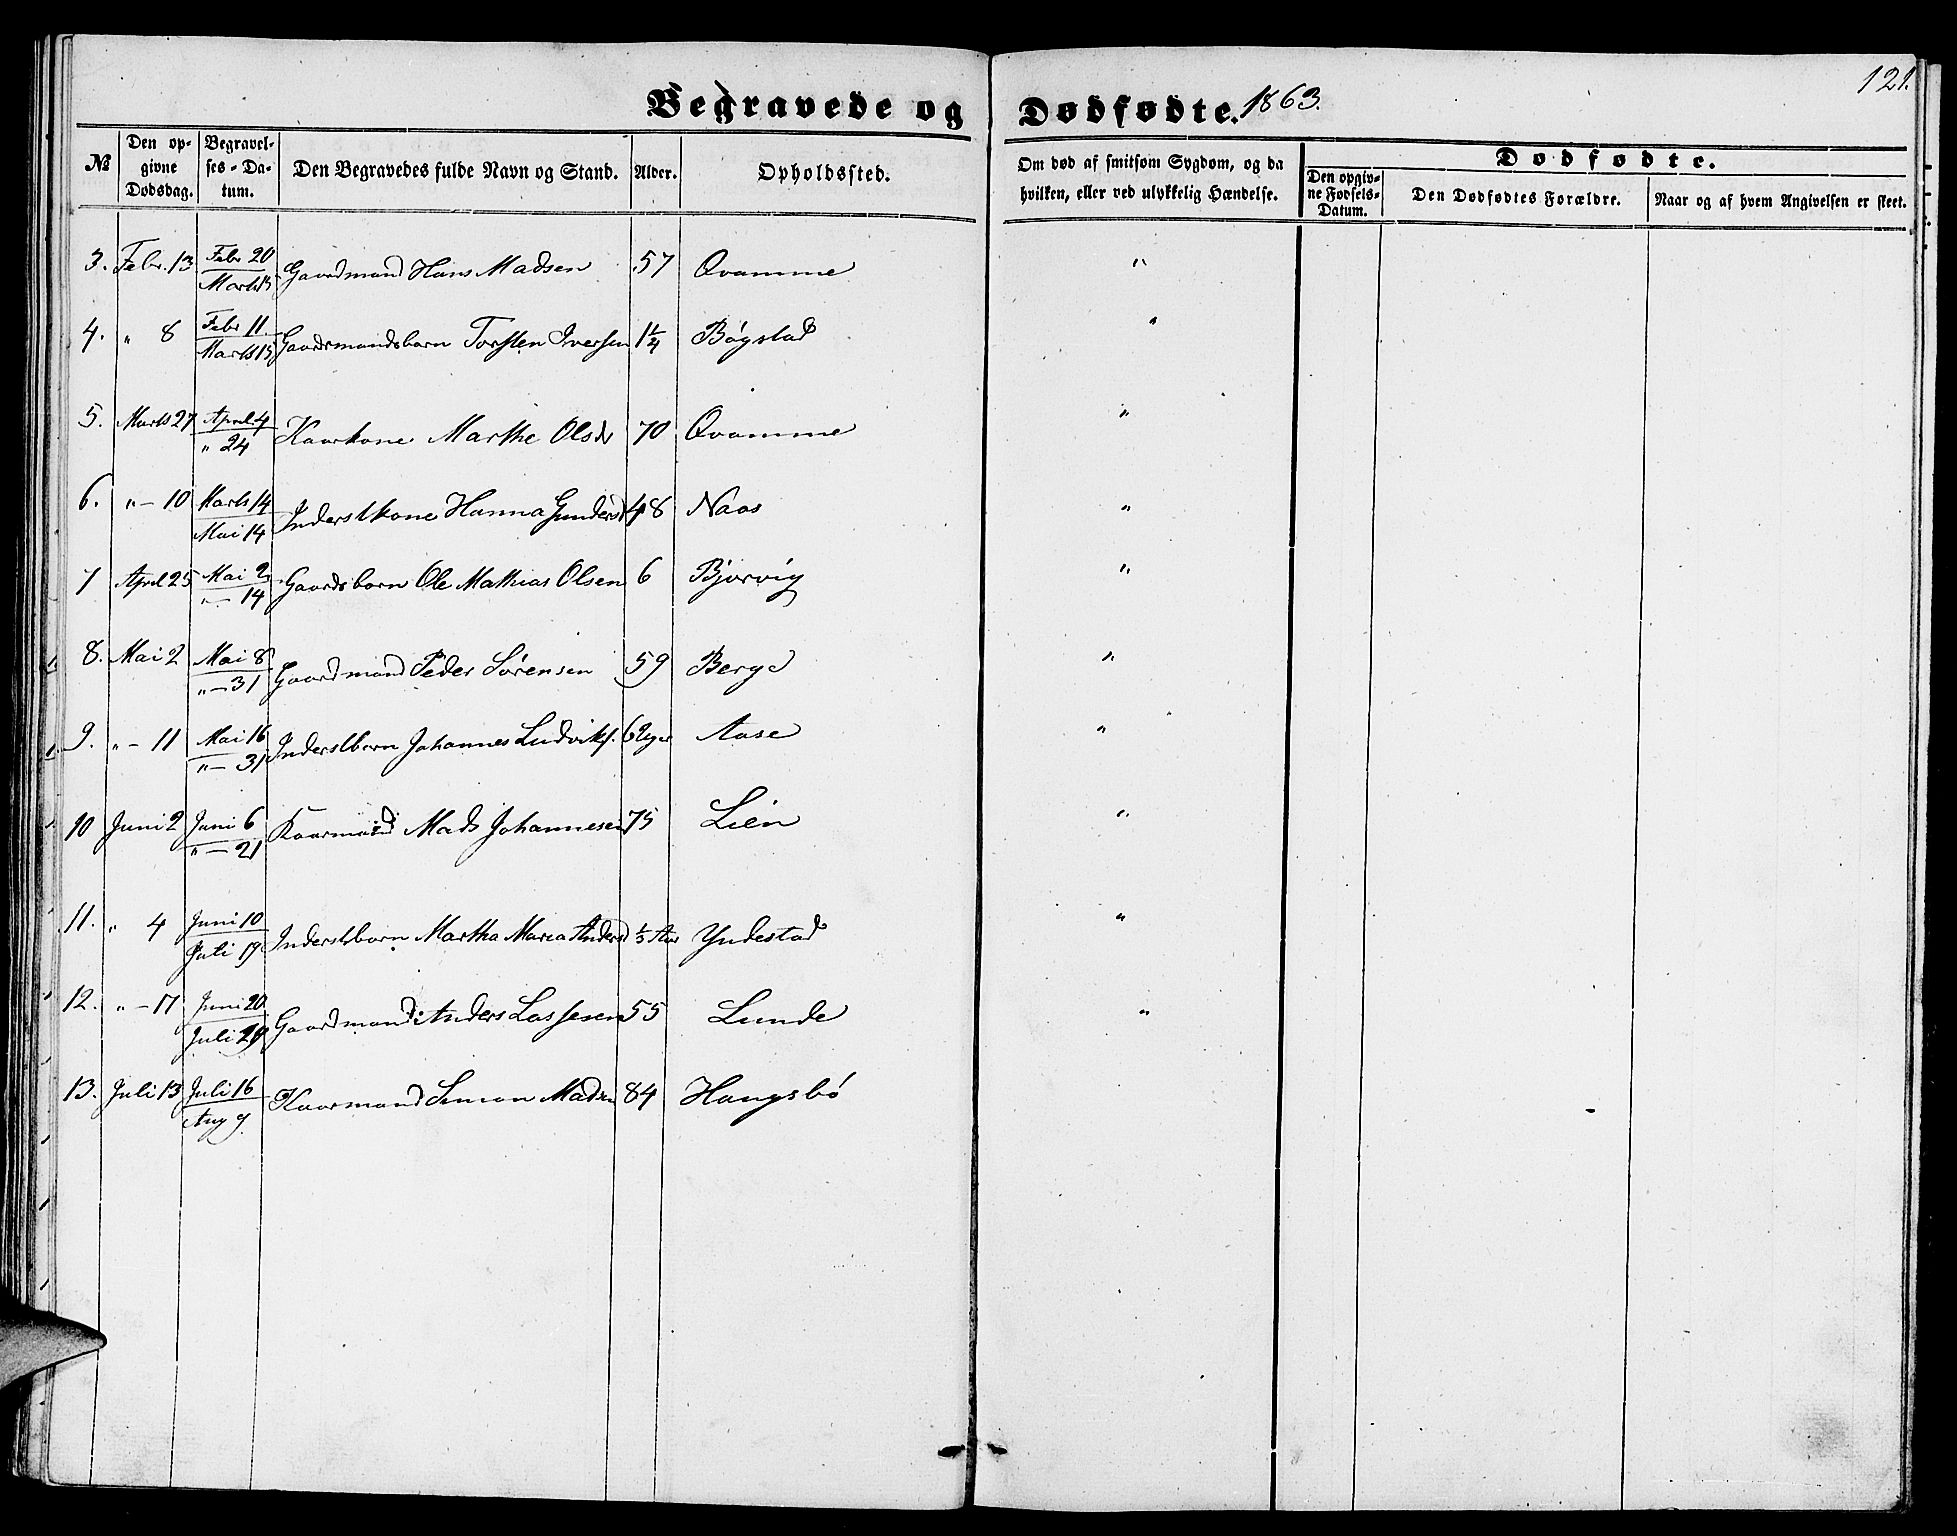 Begravede og Dødfødte. 1863.
121.
№ Den opgivne Dødsdag. Begravelses-Datum. Den Begravedes fulde Navn og Stand. Alder. Opholdssted. Om død af smitsom Sygdom, og da hvilken, eller ved ulykkelig Hændelse. Dødfødte. Den opgivne Førsels-Datum. Den Dødfødtes Forældre. Naar og af hvem Angivelsen er skeet.
3. Febr. 13 Febr 20 Marts 15 Gaardmand Hans Madsen 57 Qvamme "
4. " 8 Febr 11. Marts 15 Gaardmandsbarn Torsten Iversen 1 1/4 Bøgstad "
5. Marts 27 April 4 " 24 Kaarkone Marthe Olsd 70 Qvamme "
6. " – 10 Marts 14 Mai 14 Inderstkone Hanna Gundersd 48 Naas "
7 April 25 Mai 2 " – 14 Gaardsbarn Ole Mathias Olsen 6 Bjorvig "
8. Mai 2 Mai 8 " – 31 Gaardmand Peder Sørensen 59 Berge "
9. " – 11 Mai 16 " – 31 Inderstbarn Johannes Ludviks. 6 Uger Aase "
10 Juni 2 Juni 6 " – 21 Kaarmand Mads Johannesen 75 Lien "
11. " 4 Juni 10 Juli 19 Inderstbarn Martha Maria Andersd 1/3 Aar Yndestad "
12. " – 17 Juni 20 Juli 19 Gaardmand Anders Lassesen 55 Lunde "
13. Juli 13 Juli 16 Aug 9 Kaarmand Simon Madsen 84 Haugsbø